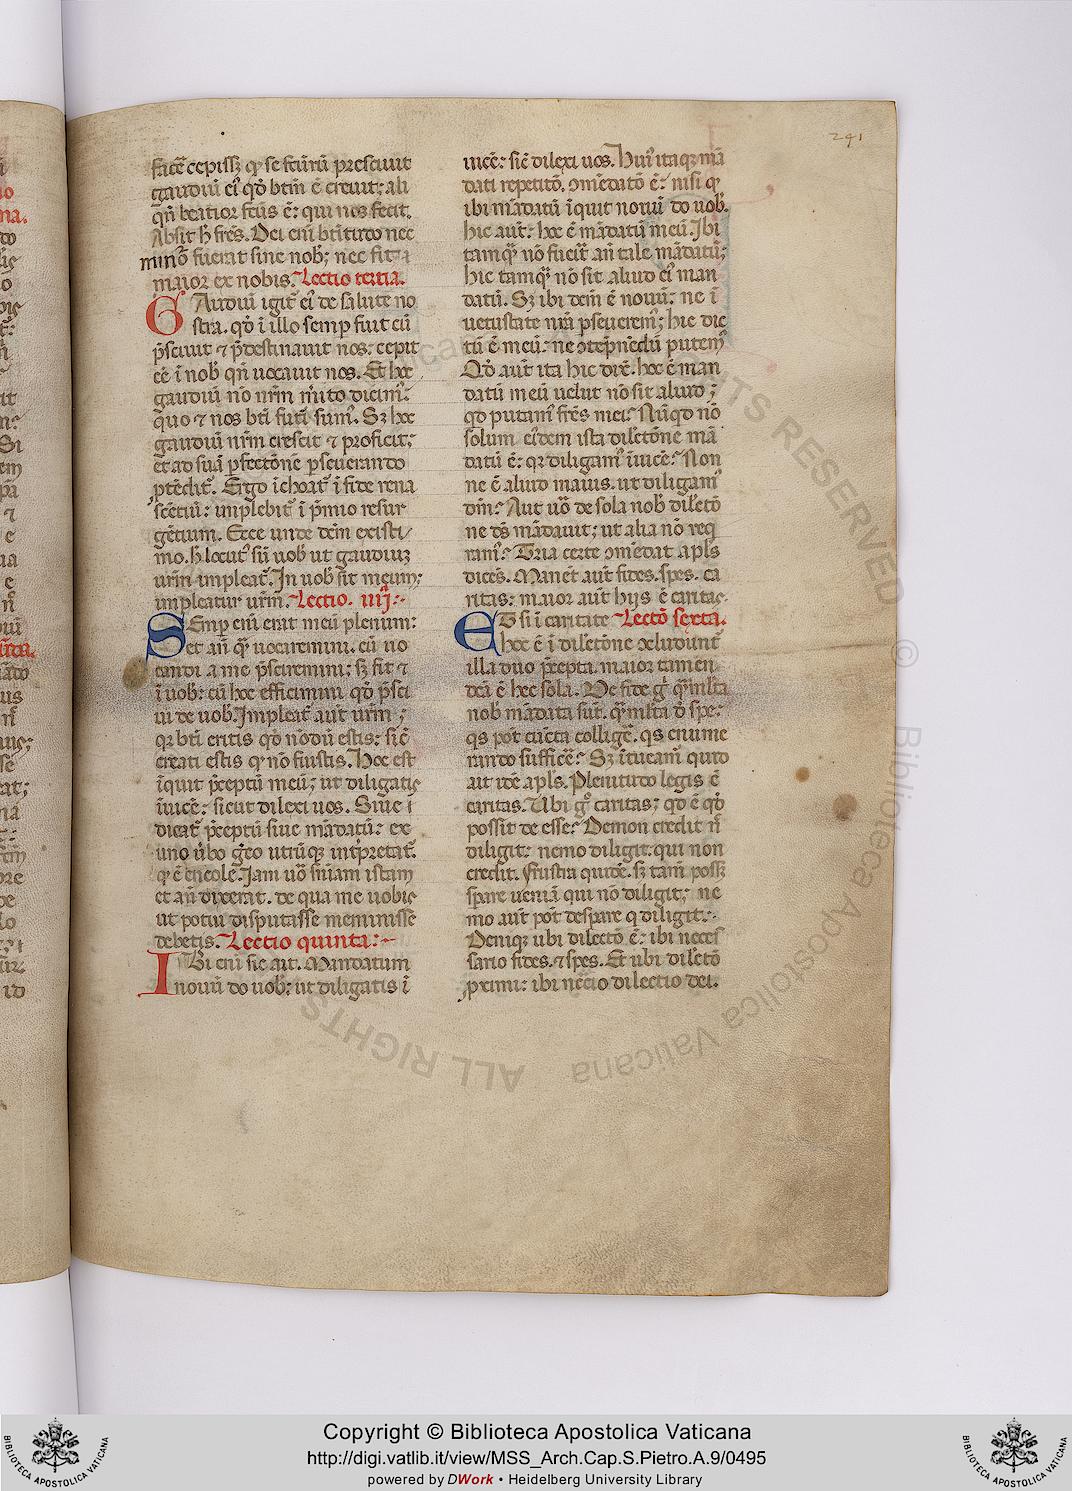 241
facē cepissꝫ qꝛ se fcūrū presciuit
gaudiū eiꝰ qð btm̄ ē creuit: ali
qn̄ beatior fctūs ē: qui nos fecit.
Absit h̄ frēs. Dei eniꝫ btītudo nec
minoꝛ fuerat sine nobꝭ; nec fit
maior ex nobis. Lectio tertia.
GAudiū igit̄ eiꝰ de salute no
stra. qð ī illo semp fuit cū
p̄sciuit ⁊ p̄destinauit nos: cepit
eē ī nobꝭ qn̄ uocauit nos. Et hoc
gaudiū nō nr̄m m̄ito dicimꝰ:
quo ⁊ nos bti futi sumꝰ. Sꝫ hoc
gaudiū nr̄m crescit ⁊ proficit;
et ad suā ꝑfectōnē ꝑseuerando
ꝑtēdit̄. Ergo īchoat̄ ī fide rena
scētiū: implebit̄ ī p̄mio resur
gētium. Ecce unde dcm̄ existi
mo. h̄ locutꝰ sū uobꝭ ut gaudiuꝫ
ur̄m impleat̄. In uobꝭ sit meum;
impleatur ur̄m. Lectio. iiij:
SEmꝑ eni erat meū plenum:
et an̄ qꝫ uocaremini. cū uo
candi a me p̄sciremini: sꝫ fit ⁊
ī uobꝭ: cū hoc efficimini qð p̄sci
ui de uobꝭ. Impleat̄ aut̄ ur̄m;
qꝛ bti eritis qð nōdū estis: sic̄
creati estis qꝛ nō fuistis. Hoc est
īquit p̄ceptū meū; ut diligatis
īuicē: sicut dilexi uos. Siue
dicat̄ p̄ceptū siue mādatū: ex
uno ūbo greo utrūqꝫ int̄pretat̄.
qð ē encole. Jam uō sn̄iam istam
et an̄ dixerat. de qua me uobis
ut potui disputasse meminisse
debetis. Lectio quinta:
IBi eni sic ait. Mandatum
nouū do uobꝭ: ut diligatis ī
uicē: sic̄ dilexi uos. Huiꝰ itaqꝫ mā
dati repetitō. ɔmēdatō ē: nisi qꝛ
ibi mādatū īquit nouū do uobꝭ.
hic aut̄: hoc ē mādatū meū. Ibi
tamqꝫ nō fuerit an̄ tale mādatū;
hic tamqꝫ nō sit aliud eiꝰ man
datū. Sꝫ ibi dcm̄ ē nouū: ne ī
uetustate nr̄a ꝑseueremꝰ; hic dic
tū ē meū: ne ɔtēpnēdū putemꝰ
Qð aut̄ ita hic dix̄. hoc ē man
datū meū uelut nō sit aliud;
qð putamꝰ frēs mei? Nūqð nō
solum eiꝰdem ista dilctōne mā
datū ē: qꝛ diligamꝰ īuicē? Non
ne ē aliud maius. ut diligamꝰ
dm̄? Aut uō de sola nobꝭ dilctō
ne ds̄ mādauit; ut alia nō req
ramꝰ? Tria certe ɔmēdat apls̄
dicēs. Manēt aut̄ fides. spes. ca
ritas: maior aut̄ hijs ē caritas.
ET si ī caritate Lectō sexta.
hoc ē ī dilctōne ɔcludunt̄
illa duo p̄cepta. maior tamen
dcā ē hec sola. De fide gꝰ qꝫmlta
nobꝭ mādata sūt. qꝫmlta d̄ spe:
qs pot cūcta colligē. qs enume
rando sufficē? Sꝫ ītueamꝰ quid
ait idē apls̄. Plenitudo legis ē
caritas. Ubi gꝰ caritas; qð ē qð
possit de esse? Demon credit n̄
diligit: nemo diligit: qui non
credit. Frustra quidē. sꝫ tam̄ possꝫ
sꝑare ueniā qui nō diligit; ne
mo aut̄ pot̄ desꝑare q diligit.
Deniqꝫ ubi dilectō ē: ibi neces
sario fides. ⁊ spes. Et ubi dilctō
ꝓximi: ibi nec̄io dilectio dei.
Copyright © Biblioteca Apostolica Vaticana
http://digi.vatlib.it/view/MSS_Arch.Cap.S.Pietro.A.9/0495
powered by DWork • Heidelberg University Library